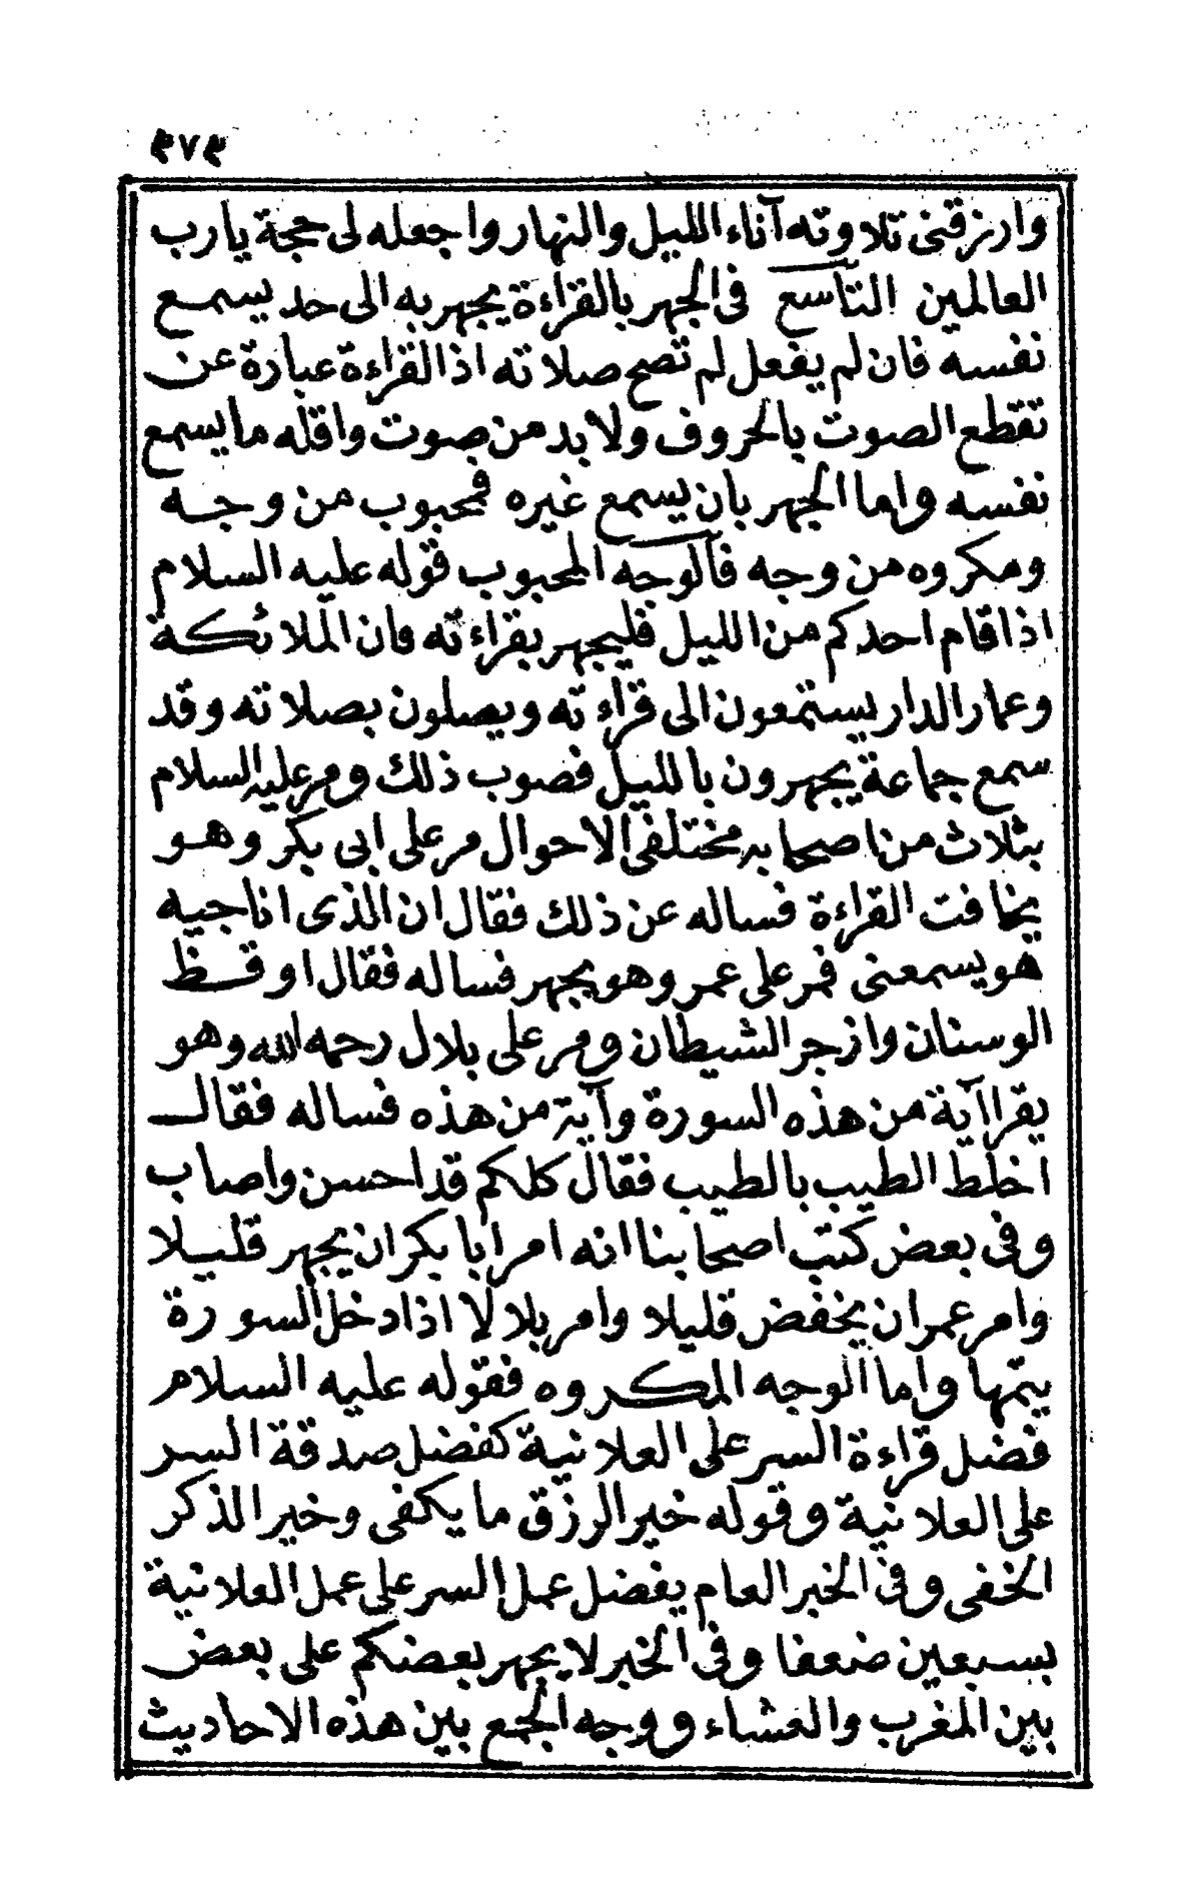 ٣٧٣
وارزقنى تلاوته آناء الليل والنهار واجعله لى حجة يارب
العالمين التاسع فى الجهر بالقراءة يجهر به الى حد يسمع
نفسه فان لم يفعل لم تصح صلاته اذ القراءة عبارة عن
تقطع الصوت بالحروف ولا بد من صوت واقله ما يسمع
نفسه واما الجهر بان يسمع غيره فمحبوب من وجه
ومكروه من وجه فالوجه المحبوب قوله عليه السلام
اذا قام احدكم من الليل فليجهر بقراءته فان الملائكة
وعمار الدار يستمعون الى قراءته ويصلون بصلاته وقد
سمع جماعة يجهرون بالليل فصوب ذلك ومر عليه السلام
بثلاث من اصحابه مختلفى الاحوال مر على ابى بكر وهو
يخافت القراءة فساله عن ذلك فقال ان الذى اناجيه
هو يسمعنى فمر على عمر وهو يجهر فساله فقال اوقظ
الوسنان وازجر الشيطان ومر على بلال رحمه الله وهو
يقرا آية من هذه السورة وآية من هذه فساله فقال
اخلط الطيب بالطيب فقال كلكم قد احسن واصاب
وفى بعض كتب اصحابنا انه امر ابا بكر ان يجهر قليلا
وامر عمر ان يخفض قليلا وامر بلالا اذا دخل السورة
يتمها واما الوجه المكروه فقوله عليه السلام
فضل قراءة السر على العلانية كفضل صدقة السر
على العلانية وقوله خير الرزق ما يكفى وخير الذكر
الخفى وفى الخبر العام يفضل عمل السر على عمل العلانية
بسبعين ضعفا وفى الخبر لا يجهر بعضكم على بعض
بين المغرب والعشاء ووجه الجمع بين هذه الاحاديث